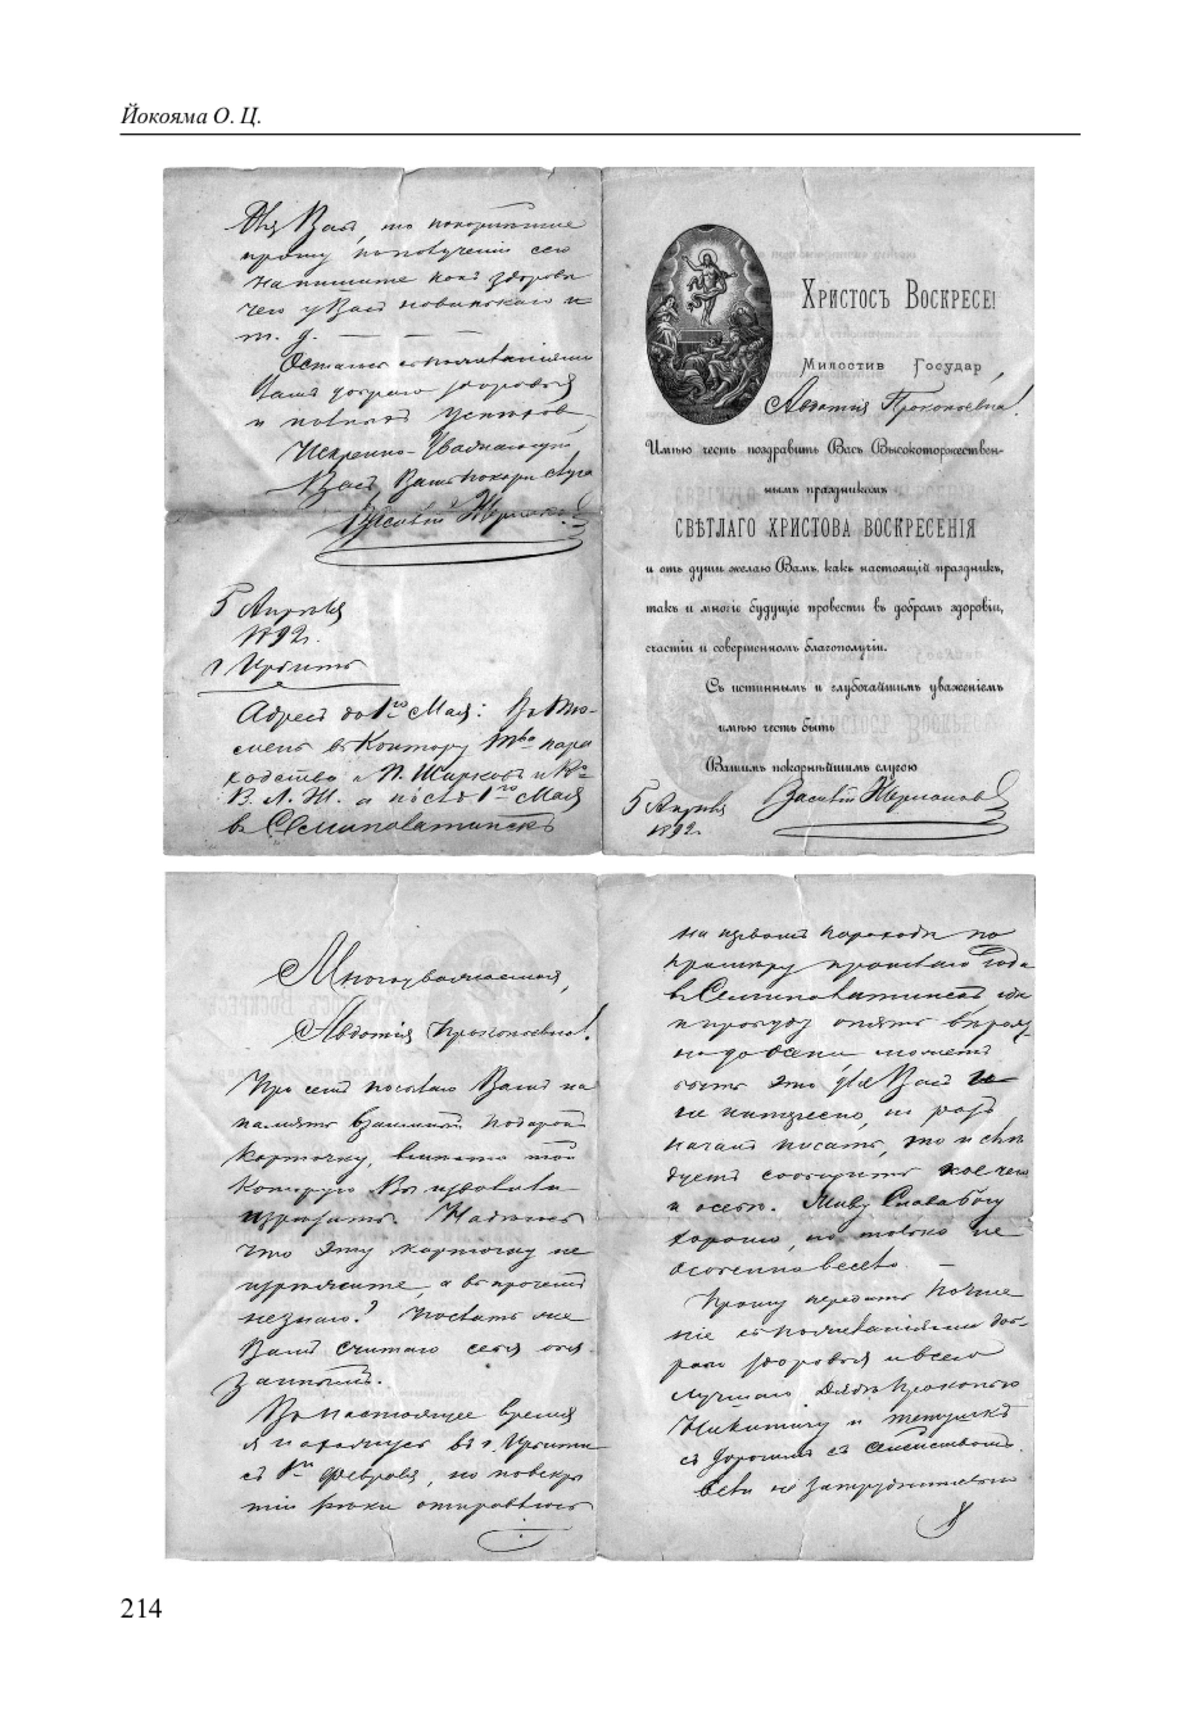 Йокояма О. Ц.
Для Васъ, то покорнѣйше
прошу по получении сего
напишите какъ здоровы
чего у Васъ новинькаго и
т. д. — — —
Остаюсь съ пожеланіями
Вамъ добраго здоровья
и полныхъ успѣховъ
Искренно-Уважающій
Васъ, Вашъ покорн. слуга
Василій Жернаков
5 Апрѣля
1892 г.
г. Ирбитъ
Адресъ до 1го Мая: Въ Тю-
мень въ Контору Тва паро
ходство И. Ширковъ и Ко
В. Л. Ж. а послѣ 1го Мая
въ Семипалатинскъ
Христосъ Воскресе!
Милостив Государ
Авдотія Прокопьевна!
Имѣю честь поздравить Васъ Высокоторжествен-
нымъ праздникомъ
СВѢТЛАГО ХРИСТОВА ВОСКРЕСЕНІЯ
и отъ души желаю Вамъ, какъ настоящій праздникъ,
такъ и многіе будущіе провести въ добромъ здоровіи,
счастіи и совершенномъ благополучіи.
Съ истиннымъ и глубочайшимъ уваженіемъ
имѣю честь быть
Вашимъ покорнѣйшимъ слугою
5 Апрѣля Василій Жернаков
1892 г.
Многоуважаемая,
Авдотія Прокопьевна!
При семъ посылаю Вамъ на
память взаимный подарокъ
карточку, вмѣсто той
которую Вы изволили
изрѣзать. Надѣюсь
что эту карточку не
изрѣжите, а впрочемъ
незнаю? Послать же
Вамъ считаю себя обя-
заннымъ.
Въ настоящее время
я нахожусь въ г. Ирбити
съ 1го февраля, но по вскры
тіи рѣки отправлюсь
на первомъ пароходѣ по
примѣру прошлаго года
въ Семипалатинскъ, гдѣ
и пробуду опять вѣроят-
но до осени можетъ
быть это для Васъ
не интересно, но разъ
началъ писать, то и слѣ
дуетъ сообщить кое чего
и осебѣ. Живу Слава богу
хорошо, но только не
особенно весело. —
Прошу передать почте
ніе съ пожеланіями доб-
раго здоровья и всего
лучшаго Дядѣ Прокопью
Никитичу и тетушкѣ
съ дорогимъ съ семействомъ.
Если не затруднительно
214